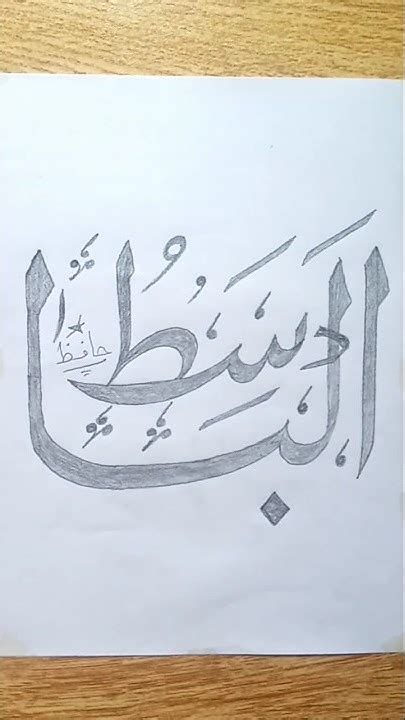 الباسط
حافظ